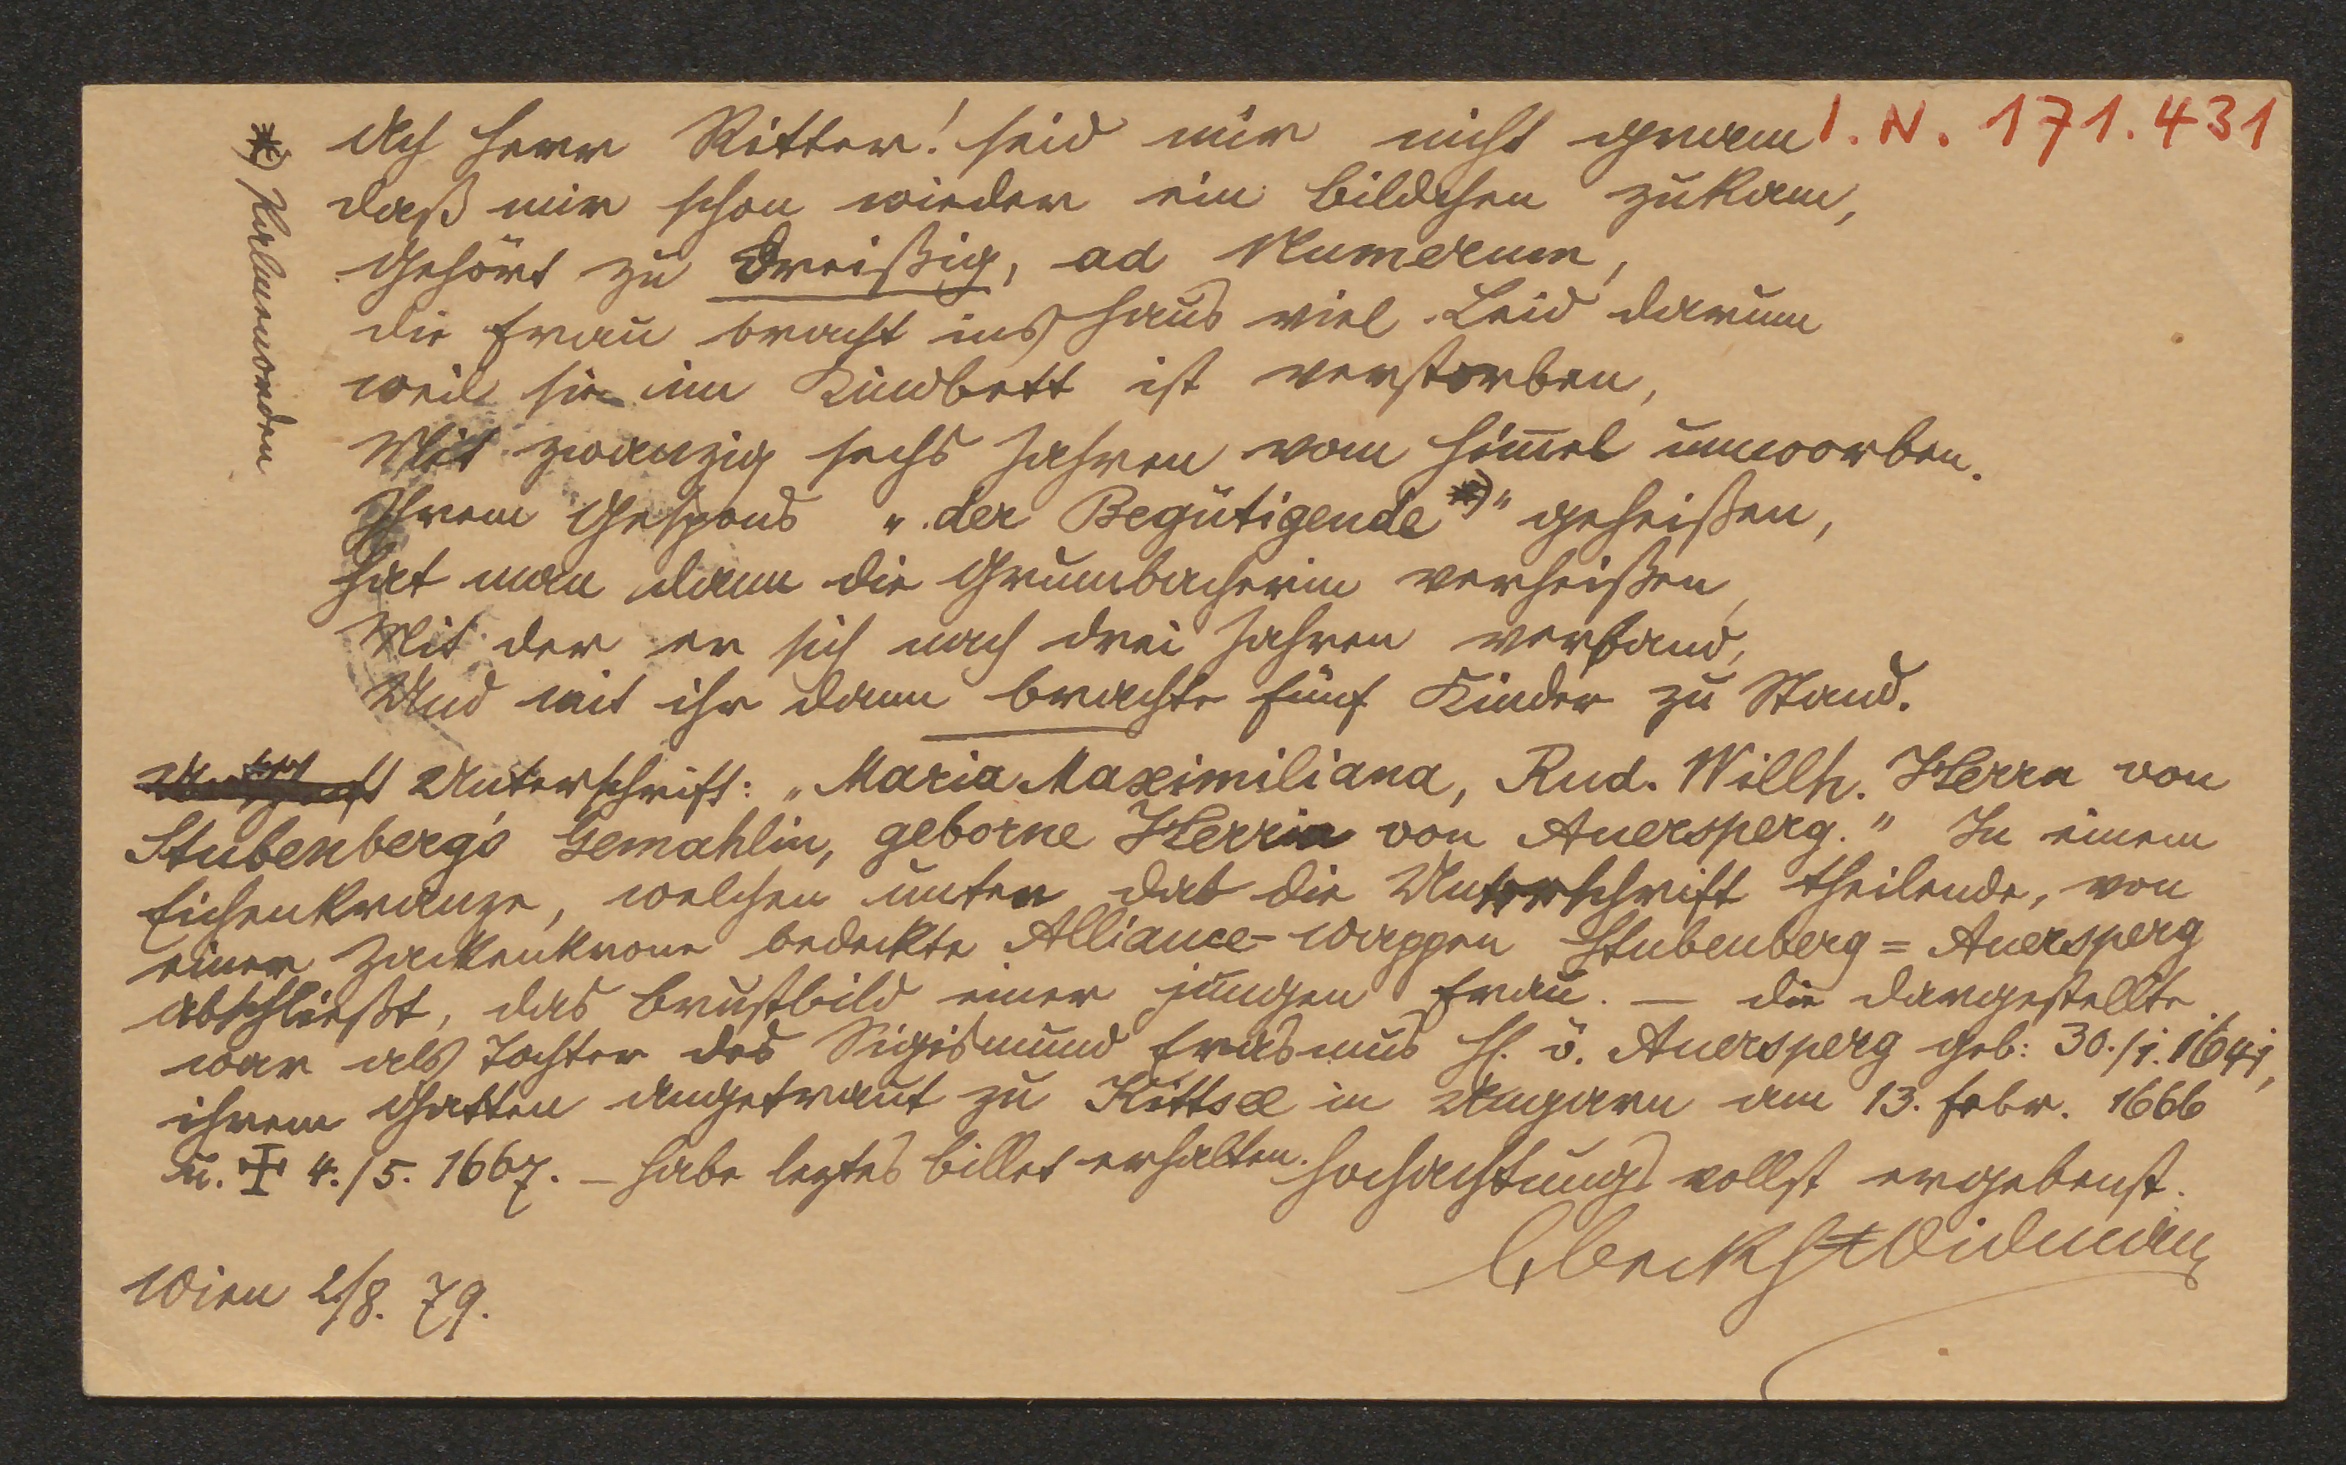 I. N. 171.431
Ach Herr Ritter! seid mir nicht gram
daß mir schon wieder ein Bildchen zukam,
Gehört zu Dreißig, ad Numerum,
die Frau bracht ins Haus viel Leid darum
weil sie im Kindbett ist verstorben,
Mit zwanzig sechs Jahren vom Him̅el umworben.
Ihrem Gespons „der Begütigende *)" geheißen,
hat man dann die Grumbacherin verheißen,
Mit der er sich nach drei Jahren verband,
Und mit ihr dann brachte fünf Kinder zu Stand.
*) Palmenorden
Unterschrift: „Maria Maximiliana, Rud. Willh. Herrn von
Stubenberg's Gemahlin, geborne Herrin von Auersperg." In einem
Eichenkranze, welchen unten das die Unterschrift theilende, von
einer Zackenkrone bedeckte Alliance-Wappen Stubenberg = Auersperg
abschließt, das Brustbild einer jungen Frau. — die dargestellte
war als Tochter des Sigismund Erasmus H. v. Auersperg geb: 30./1. 1641,
ihrem Gatten angetraut zu Kittsee in Ungarn am 13. Febr. 1666
u. ✝ 4./5. 1667. — habe leztes Billet erhalten. Hochachtungsvollst ergebenst.
Beckh Widman
Wien 2/8. 79.